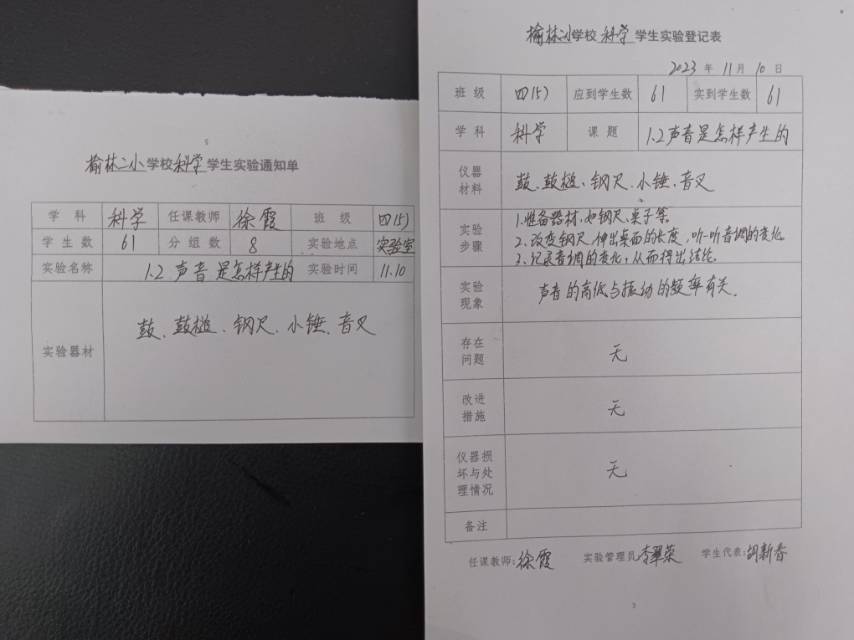 榆林二小学校科学学生实验通知单
学 科 科学 任课教师 徐霞 班 级 四(5)
学 生 数 61 分 组 数 8 实验地点 实验室
实验名称 1.2 声音是怎样产生的 实验时间 11.10
实验器材 鼓、鼓槌、钢尺、小锤、音叉
榆林二小学校 科学 学生实验登记表
2023 年 11 月 10 日
班 级 四(5) 应到学生数 61 实到学生数 61
学 科 科学 课 题 1.2声音是怎样产生的
仪器
材料
鼓、鼓槌、钢尺、小锤、音叉
实验
步骤
1.准备器材,如钢尺、桌子等.
2.改变钢尺伸出桌面的长度,听一听音调的变化.
3.记录音调的变化,从而得出结论.
实验
现象
声音的高低与振动的频率有关.
存在
问题
无
改进
措施
无
仪器损
坏与处
理情况
无
备注
任课教师:徐霞 实验管理员:李翠荣 学生代表:胡新春